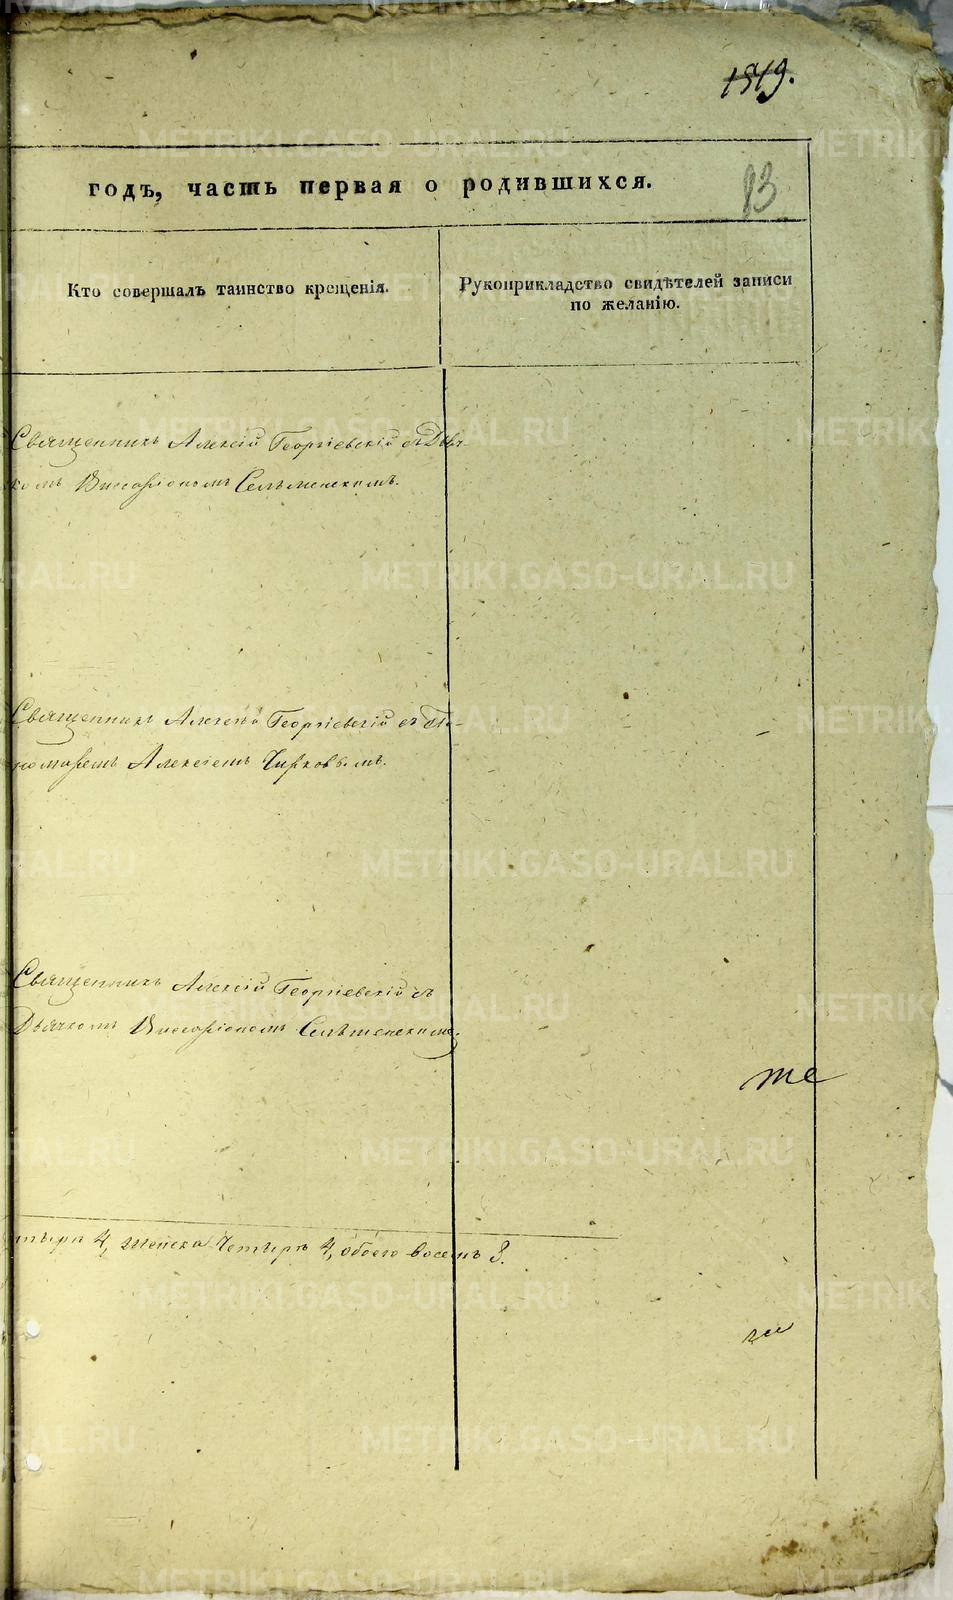 1519.
годъ, часть первая о родившихся.
83
Кто совершалъ таинство крещенія.
Рукоприкладство свидѣтелей записи
по желанію.
Священникъ Алексій Георгіевскій съ Дьяч-
комъ Виссаріономъ Селѣменскимъ.
Священникъ Алексѣй Георгіевскій съ По-
номаремъ Алексіемъ Чирковымъ.
Священникъ Алексій Георгіевскій съ
Дьячкомъ Виссаріономъ Селѣменскимъ.
те
тыри 4, женска Четыре 4, обоего восемь 8.
METRIKI.GASO-URAL.RU